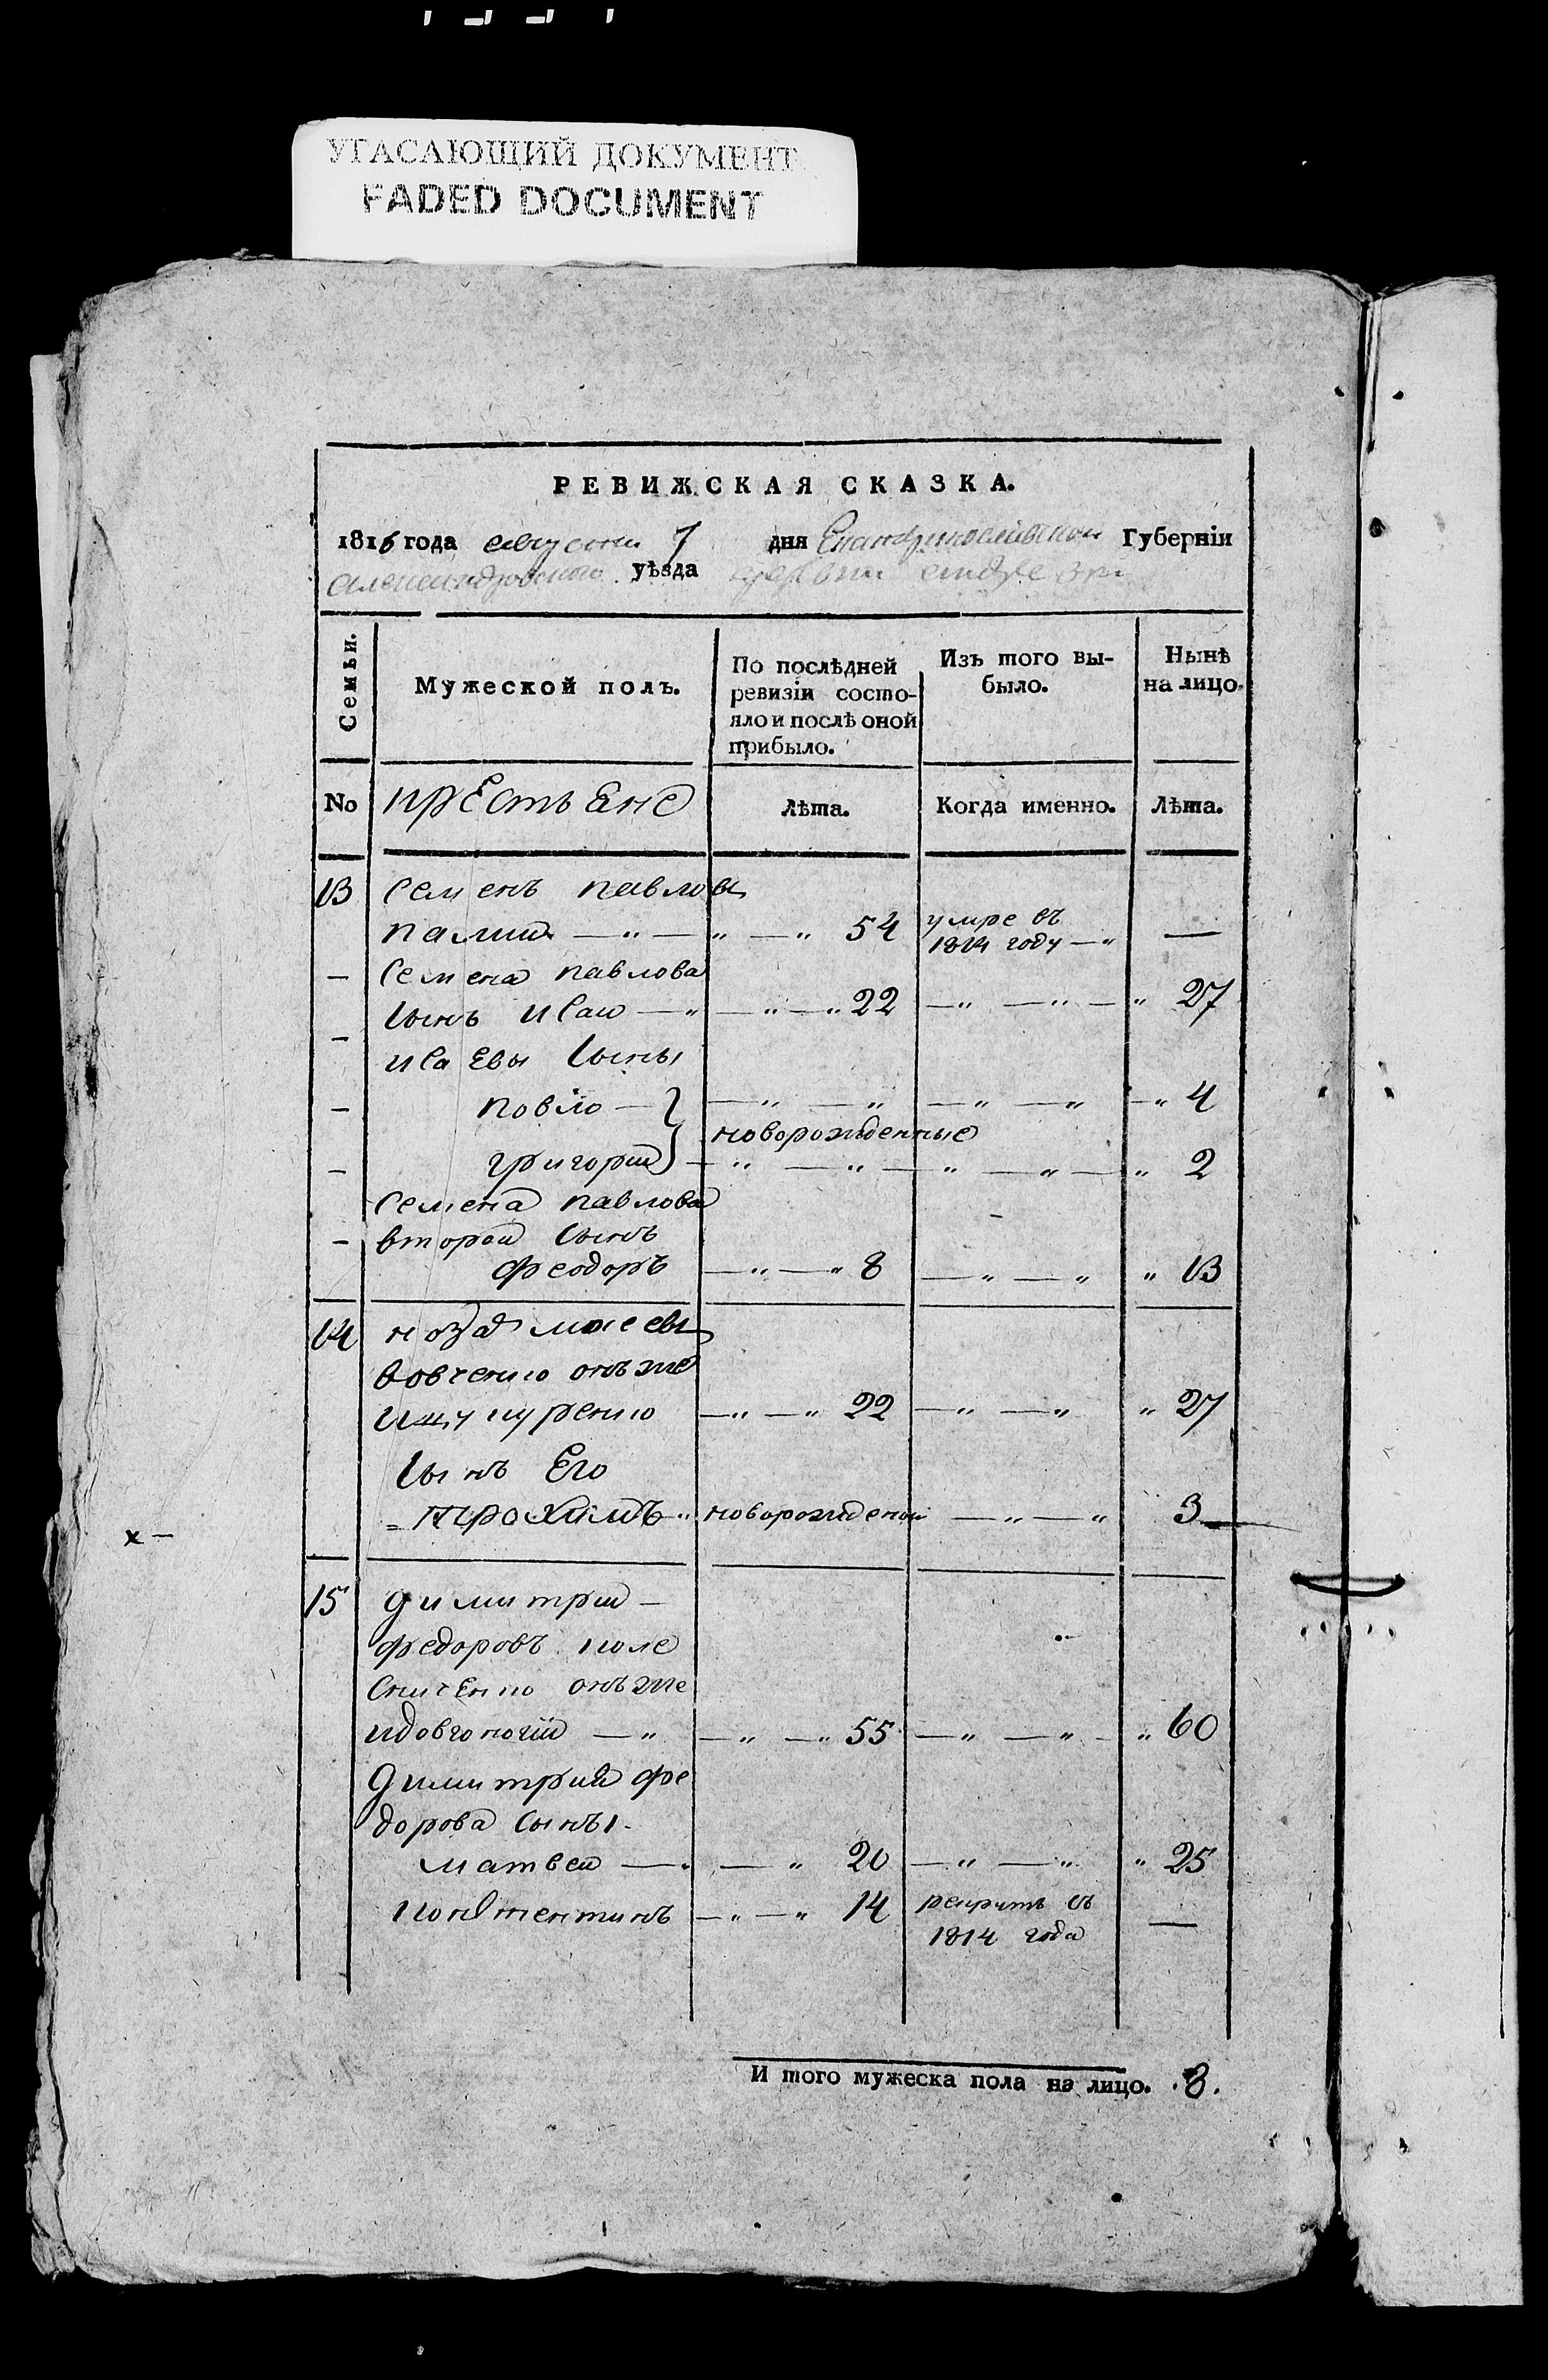 УГАСАЮЩИЙ ДОКУМЕНТ
FADED DOCUMENT
РЕВИЖСКАЯ СКАЗКА.
1816 года августа 7 дня Екатеринославской Губерніи
александровского уѣзда
Семьи.
Мужеской полъ.
По послѣдней ревизіи состояло и послѣ оной прибыло.
Изъ того выбыло.
Нынѣ на лицо.
No крестьяне Лѣта. Когда именно. Лѣта.
13 Семенъ павловъ
54 умре въ 1814 году —
Семена павлова
сынъ исаи 22 27
исаевы сыны
повло 4
новорожденные
григории 2
Семена павлова
второи сынъ
феодоръ 8 13
14
онъ же
22 27
сынъ Его
трохимъ новорожденои 3
x —
15 димитрии
федоровъ коле
сниченко онъ же
идовгоногіи 55 60
димитрии фе
дорова сыны
матвеи 20 25
констентинъ 14 рекрутъ съ 1814 года —
И того мужеска пола на лицо. 8.